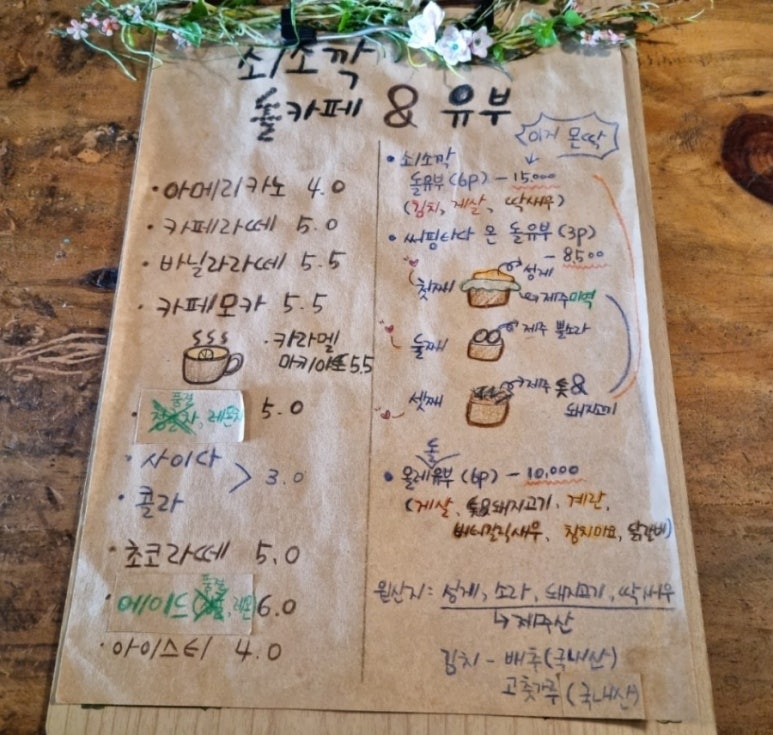 쇠소깍
돌카페 & 유부
· 아메리카노 4.0
· 카페라떼 5.0
· 바닐라라떼 5.5
· 카페모카 5.5
· 카라멜
마키아또 5.5
품절
레몬차 5.0
· 사이다
· 콜라 > 3.0
· 초코라떼 5.0
품절
· 에이드 6.0
· 아이스티 4.0
이거 몬딱
• 쇠소깍
돌유부 (6p) - 15,000
(김치, 게살, 딱새우)
• 써핑타다 온 돌유부 (3p)
- 8,500
첫째 성게
제주미역
둘째 제주 뿔소라
셋째 제주 톳&
돼지고기
돌
• 올레유부 (6p) - 10,000
(게살, 돼지고기, 계란,
버터갈릭새우, 참치마요, 닭갈비)
원산지: 성게, 소라, 돼지고기, 딱새우
↳ 제주산
김치 - 배추(국내산)
고춧가루 (국내산)